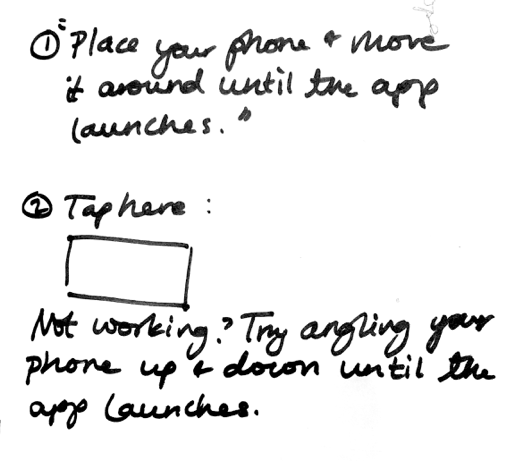 ① "Place your phone & move
it around until the app
launches."
② Tap here :
Not working? Try angling your
phone up & down until the
app launches.